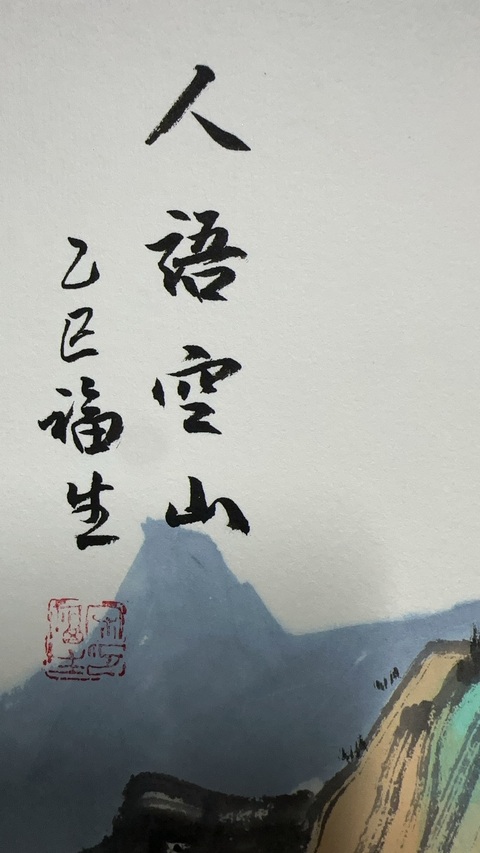 人語空山
乙巳福生